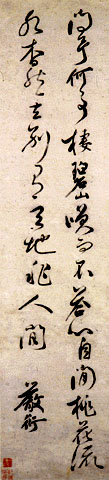 問予何事棲碧山咲而不答心自閒桃花流
水杳然去別有天地非人間